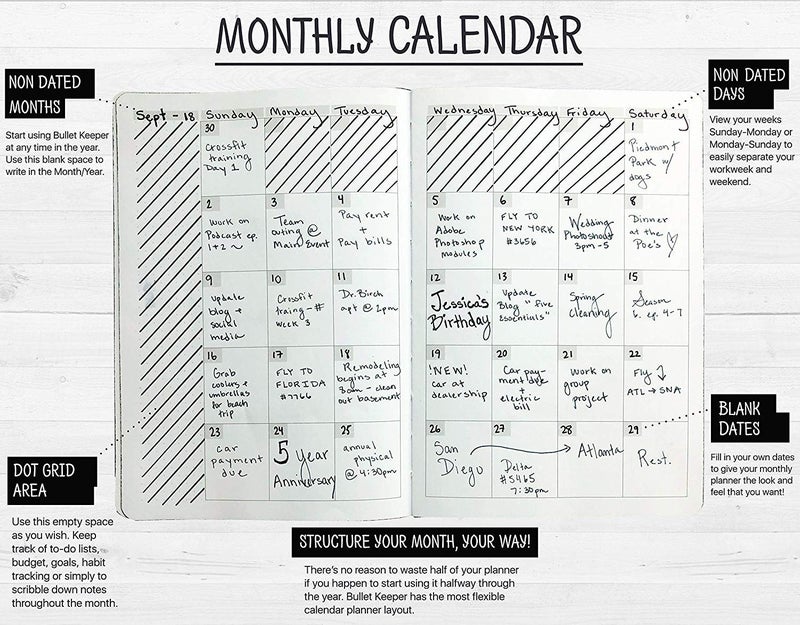 MONTHLY CALENDAR
NON DATED
MONTHS
Start using Bullet Keeper
at any time in the year.
Use this blank space to
write in the Month/Year.
NON DATED
DAYS
View your weeks
Sunday-Monday or
Monday-Sunday to
easily separate your
workweek and
weekend.
Sept - 18 Sunday Monday Tuesday Wednesday Thursday Friday Saturday
30
Crossfit
training
Day 1
1
Piedmont
Park w/
dogs
2
Work on
Podcast ep.
1+2 ~
3
Team
outing @
Main Event
4
Pay rent
+
Pay bills
5
Work on
Adobe
Photoshop
modules
6
FLY TO
NEW YORK
#3656
7
Wedding
Photoshoot
3pm-5
8
Dinner
at the
Poe's ♡
9
update
blog +
social
media
10
Crossfit
traing-#
week 3
11
Dr. Birch
apt @ 2pm
12
Jessica's
Birthday
13
Update
Blog "five
Essentials"
14
Spring
Cleaning
15
Season
6. ep. 4-7
16
Grab
coolers +
umbrellas
for beach
trip
17
FLY TO
FLORIDA
#7766
18
Remodeling
begins at
8am - clean
out basement
19
!NEW!
car at
dealership
20
Car pay-
ment due
+
electric
bill
21
work on
group
project
22
Fly ↓
ATL → SNA
23
car
payment
due
24
5 Year
Anniversary
25
annual
physical
@ 4:30pm
26
San
Diego
27
Delta
#5465
7:30pm
28
Atlanta
29
Rest.
BLANK
DATES
Fill in your own dates
to give your monthly
planner the look and
feel that you want!
DOT GRID
AREA
Use this empty space
as you wish. Keep
track of to-do lists,
budget, goals, habit
tracking or simply to
scribble down notes
throughout the month.
STRUCTURE YOUR MONTH, YOUR WAY!
There's no reason to waste half of your planner
if you happen to start using it halfway through
the year. Bullet Keeper has the most flexible
calendar planner layout.